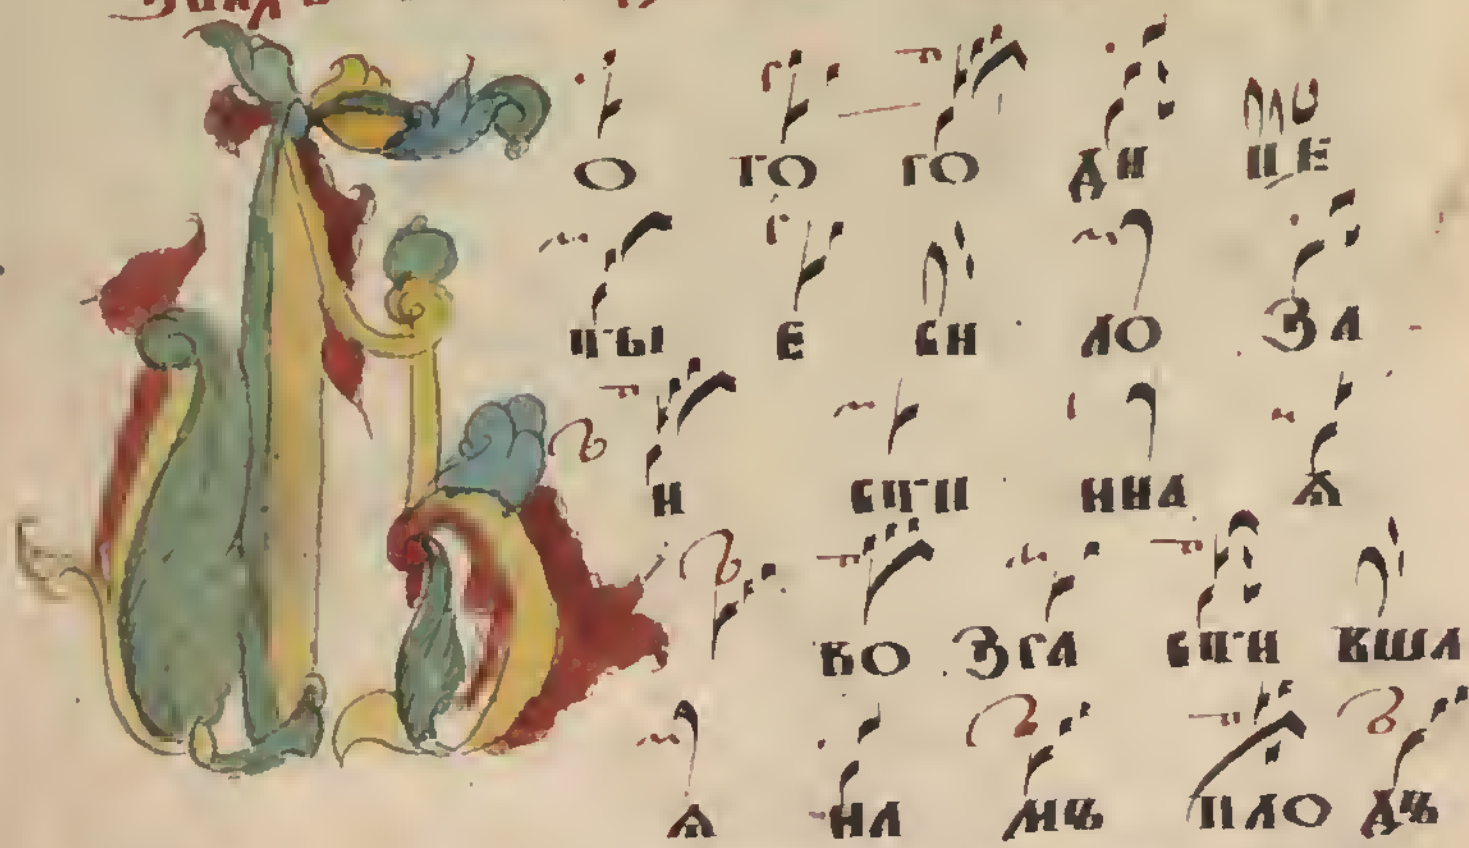 Б О ГО РО ДИ ЦЕ
ТЫ Е СИ ЛО ЗА
И СТИ ННА Ѧ
ВО ЗРА СТИ ВША
Ѧ НА МЪ ПЛО ДЪ